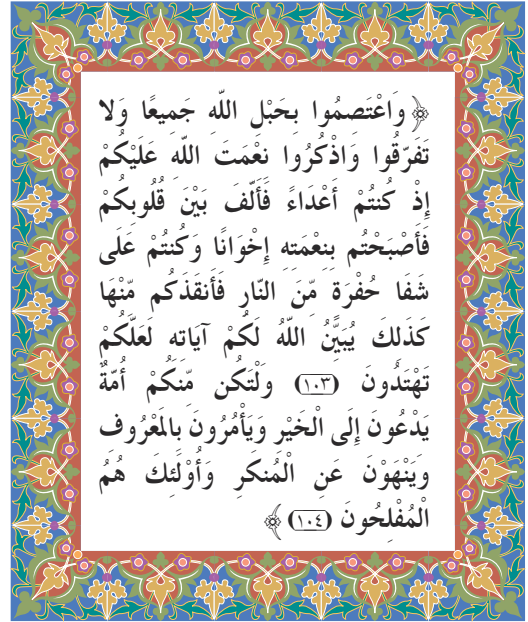 ﴿ وَاعْتَصِمُوا بِحَبْلِ اللَّهِ جَمِيعًا وَلا
تَفَرَّقُوا وَاذْكُرُوا نِعْمَتَ اللَّهِ عَلَيْكُمْ
إِذْ كُنتُمْ أَعْدَاءً فَأَلَّفَ بَيْنَ قُلُوبِكُمْ
فَأَصْبَحْتُم بِنِعْمَتِهِ إِخْوَانًا وَكُنتُمْ عَلَى
شَفَا حُفْرَةٍ مِّنَ النَّارِ فَأَنقَذَكُم مِّنْهَا
كَذَلِكَ يُبَيِّنُ اللَّهُ لَكُمْ آيَاتِهِ لَعَلَّكُمْ
تَهْتَدُونَ (١٠٣) وَلْتَكُن مِّنكُمْ أُمَّةٌ
يَدْعُونَ إِلَى الْخَيْرِ وَيَأْمُرُونَ بِالْمَعْرُوفِ
وَيَنْهَوْنَ عَنِ الْمُنكَرِ وَأُوْلَئِكَ هُمُ
الْمُفْلِحُونَ (١٠٤) ﴾